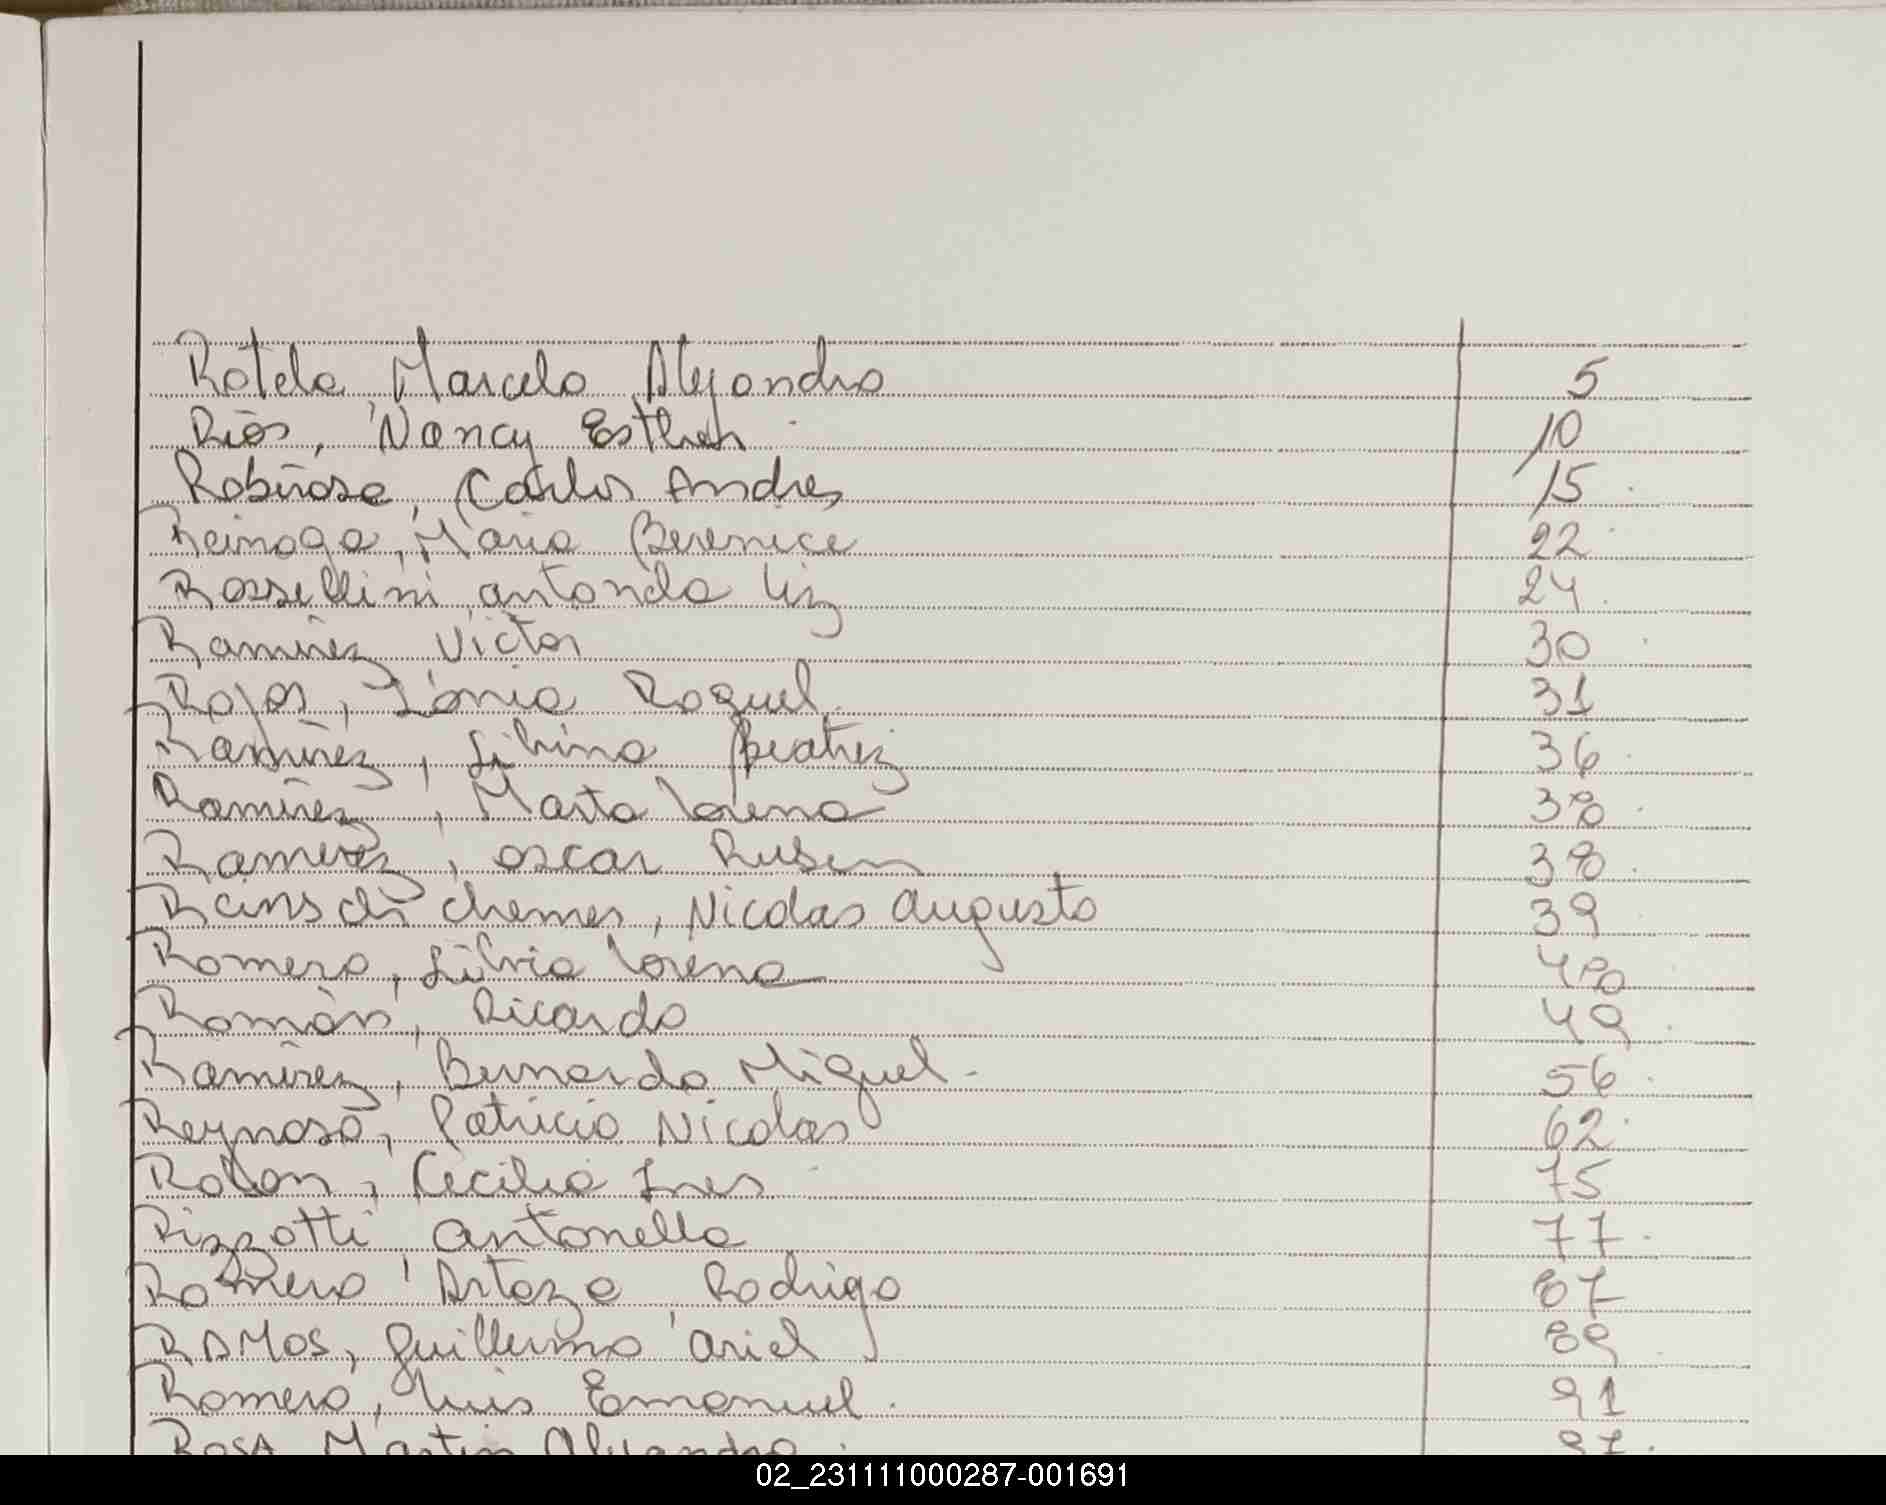 Rotela, Marcelo Alejandro 5
Ríos, Nancy Esther 10
Robirosa, Carlos Andres 15
Reinoga, Maria Berenice 22
Rossellini, antonela liz 24
Ramirez Victor 30
Rojas, Sonia Raquel 31
Ramírez, Silvina Beatriz 36
Ramirez, Marta lorena 38
Ramirez, oscar Ruben 38
chemes, Nicolas augusto 39
Romero, Silvia lorena 48
Román, Ricardo 49
Ramirez, Bernardo Miguel. 56
Reynoso, Patricio Nicolas 62
Rolon, Cecilia Ines 75
Rizzotti, antonella 77
Romero Artaza, Rodrigo 87
RAMOS, guillermo ariel 89
Romero, luis Emanuel. 91
ROSA, Martin Alejandro. 97.
02_231111000287-001691